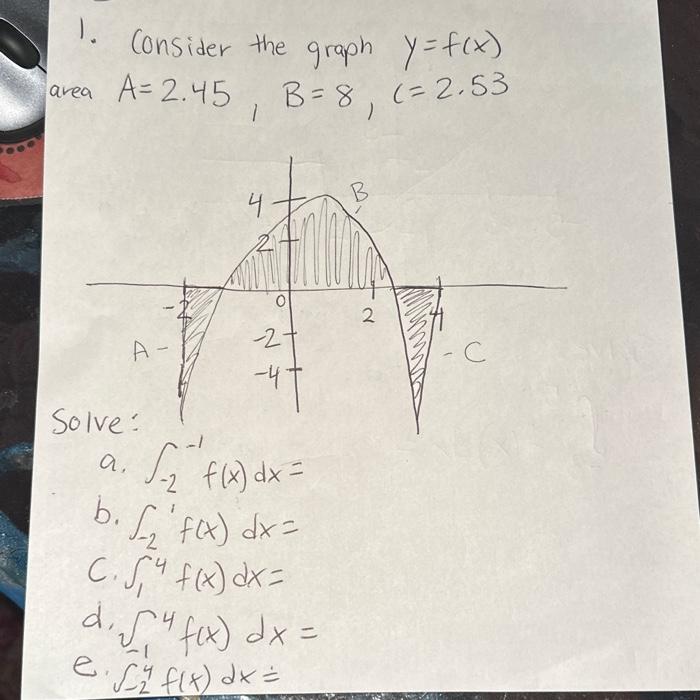 1. Consider the graph y=f(x)
area A=2.45, B=8, C=2.53
4 B
2
-2 0 2 4
A- -2 -C
-4
Solve:
a. ∫_-2^-1 f(x) dx=
b. ∫_-2^1 f(x) dx=
C. ∫_1^4 f(x) dx=
d. ∫_-1^4 f(x) dx=
e. ∫_-2^4 f(x) dx=